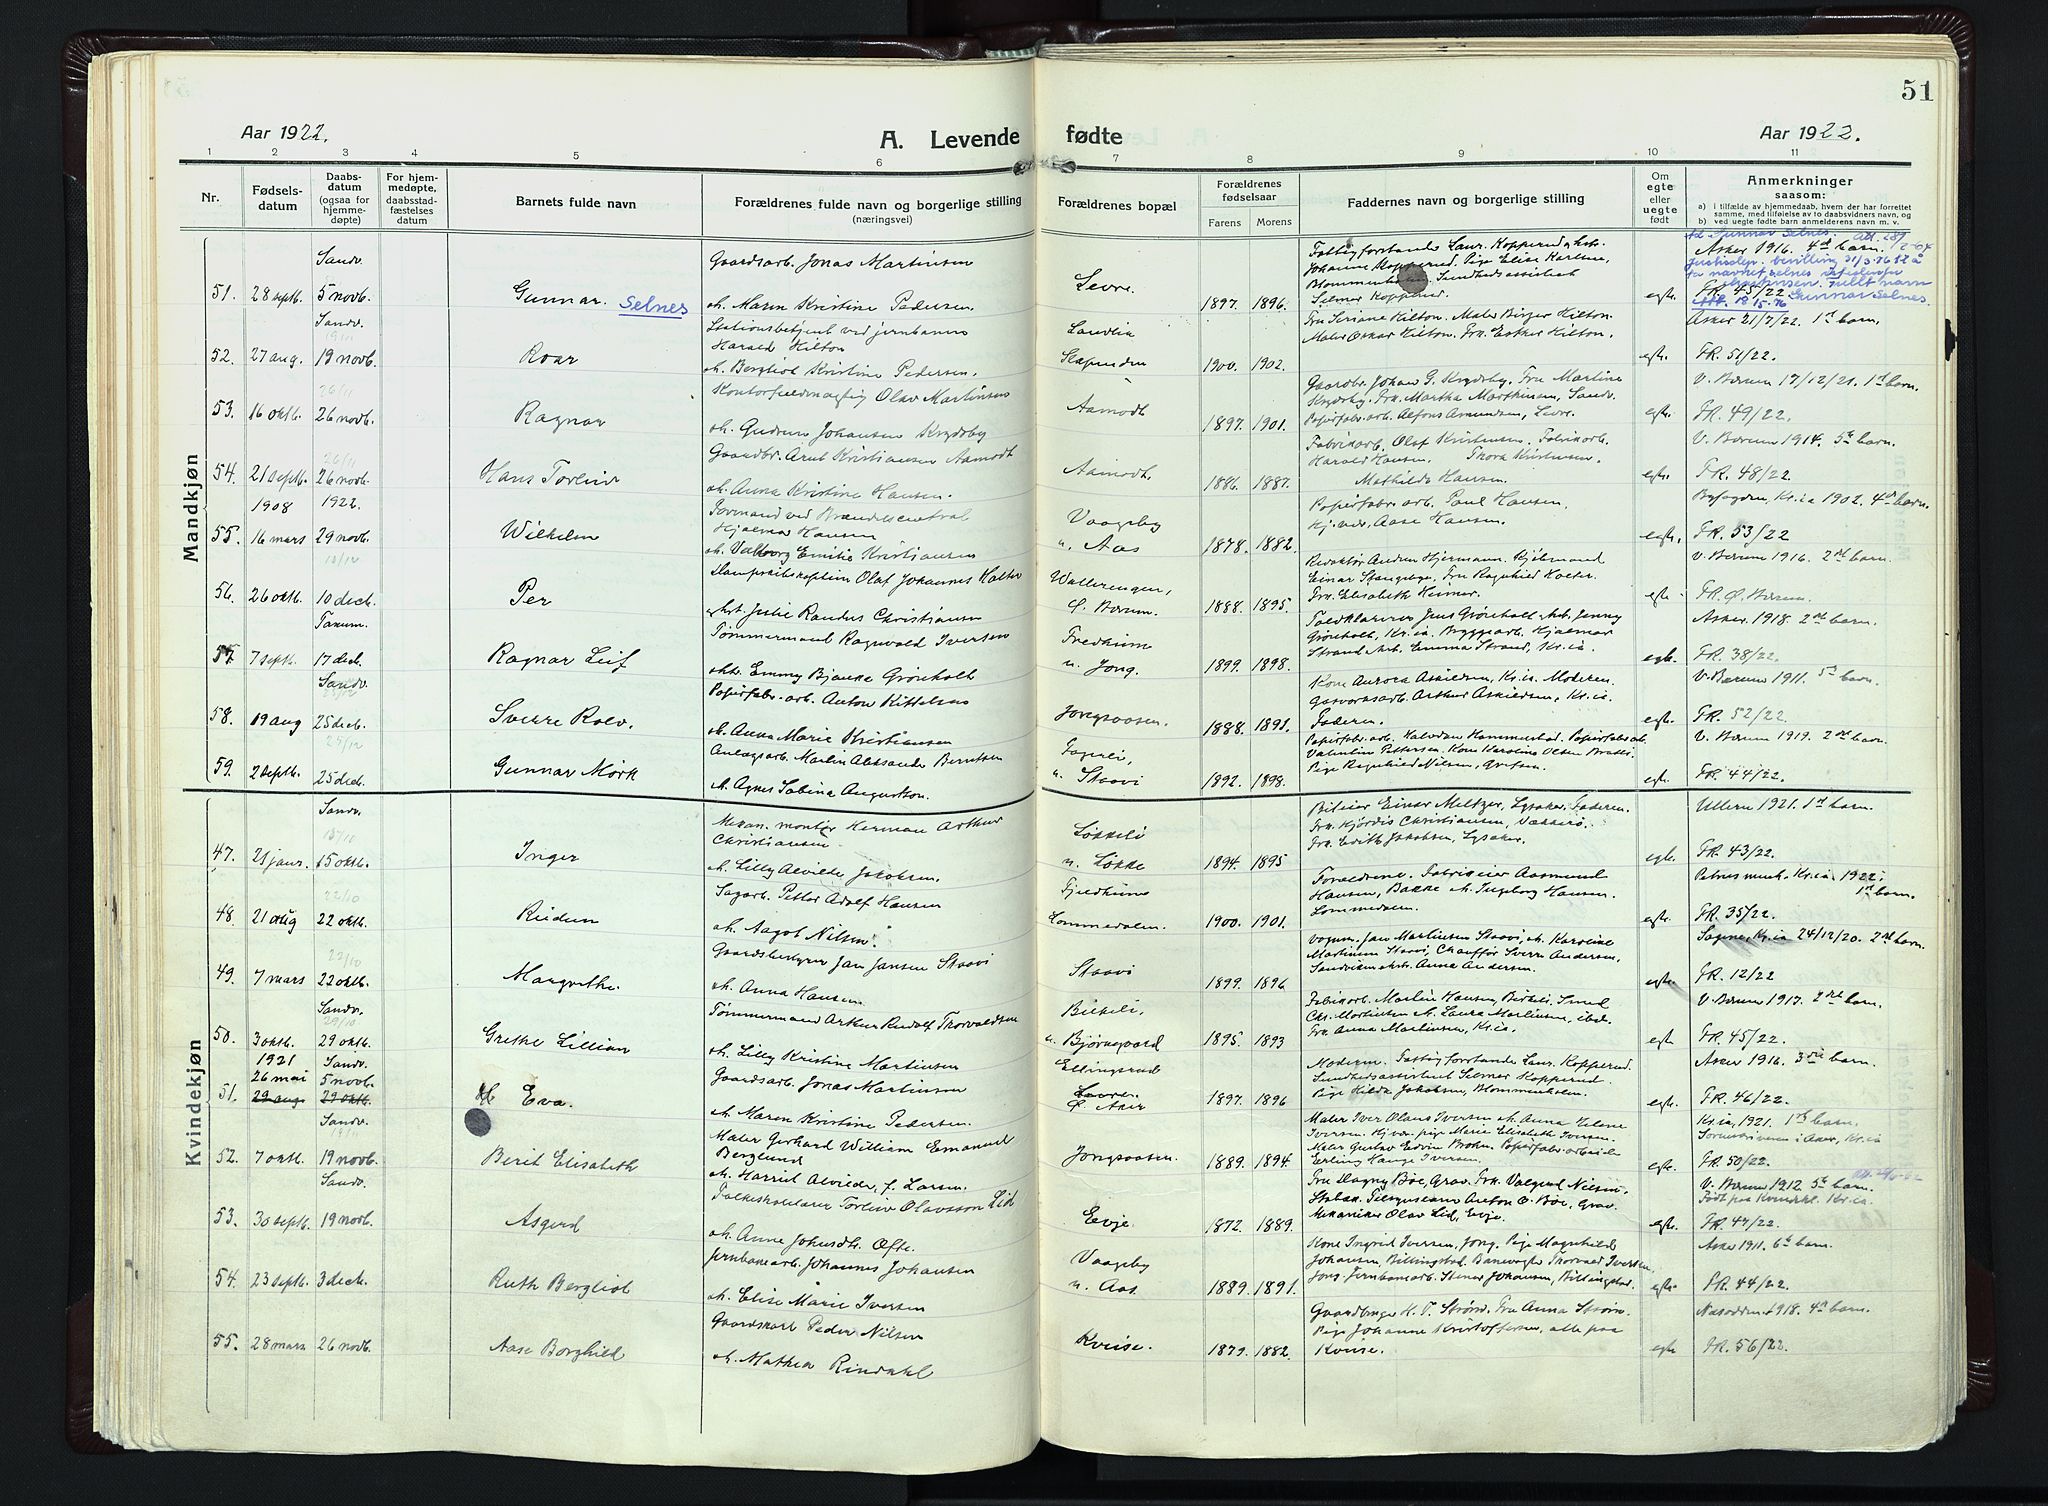 51
Aar 1922.
A. Levende fødte
Aar 1922.
1 2 3 4 5 6 7 8 9 10 11
Nr.
Fødsels-
datum
Daabs-
datum
(ogsaa for
hjemme-
døpte)
For hjem-
medøpte,
daabsstad-
fæstelses
datum
Barnets fulde navn
Forældrenes fulde navn og borgerlige stilling
(næringsvei)
Forældrenes bopæl
Forældrenes
fødselsaar
Farens Morens
Faddernes navn og borgerlige stilling
Om
egte
eller
uegte
født
Anmerkninger
saasom:
a) i tilfælde av hjemmedaab, hvem der har forrettet
samme, med tilføielse av to daabsvidners navn, og
b) ved uegte fødte barn anmelderens navn m. v.
Mandkjøn
Sandv.
Gaardsarb. Jonas Martinsen
Johanne Kopperud, Pige Elise Karlsen,
Asker 1916. 4de barn.
51. 28 septb. 5 novb. Gunnar. Selnes
h. Maren Kristine Pedersen.
Levre. 1897. 1896.
Selmer Kopperud.
egte. FR. 45/22.
Sandv.
19/11
Stationsbetjent ved jernbanen
Harald Hilton
Fru Seriane Hilton. Maler Birger Hilton.
Maler Oskar Hilton. Frk. Esther Hilton.
Asker 21/7/22. 1st barn.
52. 27 aug. 19 novb. Roar
h. Bergliot Kristine Pedersen.
Sandvin
Slependen 1900. 1902.
egte. FR. 51/22.
26/11
Kontorfuldmægtig Olav Martinsen
V. Bærum 17/12/21. 1st barn.
53. 16 oktb. 26 novb. Ragnar
h. Gudrun Johansen Krydsby
Aamodt 1897. 1901.
Papirfabr. arb. Alfons Amundsen, Levre.
egte. FR. 49/22.
26/11
Gaardbr. Arnt Kristiansen Aamodt
Fabrikarb. Olaf Kristensen. Fabrikarb.
Harald Hansen. Thora Kristensen.
Mathilde Hansen.
V. Bærum 1914. 5te barn.
54. 21 septb. 26 novb. Hans Torleiv
h. Anna Kristine Hansen.
Aamodt. 1886. 1887.
egte. FR. 48/22.
1908 1922.
Formand ved Brændelscentral
Hjalmar Hansen
Papirfabr. arb. Paul Hansen,
Hj. vær. Aase Hansen.
Kr.ia 1902. 4de barn.
55. 16 mars 29 novb. Wilhelm
h. Valborg Emilie Kristiansen
Vaageby
u. Aas 1878. 1882.
egte. FR. 53/22
10/12
Dampskibskaptein Olaf Johannes Holter
Redaktør Anders Hjermann.
Einar Stangebye, Fru Ragnhild Holter.
Frk. Elisabeth Heimer.
V. Bærum 1916. 2det barn.
56. 26 oktb. 10 decb. Per
hst. Julie Randus Christiansen
Wallerengen,
Ø. Bærum. 1888. 1895.
egte. FR. Ø. Bærum.
Tanum.
Tømmermand Ragnvald Iversen
Toldklarerer Jens Grønholt, hst. Jenny
Grønholt, Kr.ia. Byggearb. Hjalmar
Strand, hst. Emma Strand, Kr.ia.
Asker. 1918. 2det barn.
57. 7 septb. 17 decb. Ragnar Leif
hst. Emmy Bjanka Grønholt
Fredheim
u. Jong. 1899. 1898.
egte. FR. 38/22.
Sandv.
Papirfabr. arb. Anton Kittelsen
Kone Aurora Askildsen, Kr.ia. Moderen.
Gasverksarb. Arthur Askildsen, Kr.ia.
Faderen.
V. Bærum 1911. 5te barn.
58. 19 aug 25 decb. Sverre Rolv.
h. Anna Marie Kristiansen
Jongsaasen. 1888. 1891.
egte. FR. 52/22.
25/12
Anlægsarb. Martin Aleksander Berntsen
Papirfabr. arb. Halvdan Hammerstad. Papirfabr. arb.
Valentin Pettersen. Kone Karoline Olsen
Pige Ragnhild Nilsen,
V. Bærum 1919. 2det barn.
59. 2 septb. 25 decb. Gunnar Mørk
h. Agnes Sabina Augustson.
u. Staavi 1892. 1898.
egte. FR. 44/22.
Kvindekjøn
Sandv.
15/10
Mekan. montør Herman Arthur
Christiansen
Bileier Einar Meltzer, Lysaker, Faderen.
Frk. Hjørdis Christiansen, Vækkerø.
Frk. Edith Jakobsen, Lysaker.
Ullern 1921. 1st barn.
47. 21 janr. 15 oktb. Inger
h. Lilly Alvilde Jakobsen.
Løkkeli
u. Løkke 1894. 1895
egte. FR. 43/22.
22/10
Sagarb. Petter Adolf Hansen
Forældrene. Fabrikeier Aasmund
Hansen, Bakke, h. Ingeborg Hansen.
Lommedalen.
Petrus menh. Kr.ia 1922.
1st barn.
48. 21 aug 22 oktb. Reidun
h. Aagot Nilsen.
Lommedalen. 1900. 1901.
egte. FR. 35/22.
22/10
Gaardsbestyrer Jan Jansen Staavi
Vognm. Jan Martinsen Staavi, h. Karoline
Martinsen Staavi, Chauffør Sverre Andersen,
Sandviken, hst. Anna Andersen.
Sagene, Kr.ia 24/12/20. 2det barn.
49. 7 mars 22 oktb. Margrethe.
h. Anna Hansen
Staavi 1899. 1896.
egte. FR. 12/22
Sandv.
29/10
Tømmermand Arthur Rudolf Thorvaldsen
Fabrikarb. Martin Hansen, Birkeli. Smed
Chr. Martinsen, h. Laura Martinsen, ibid.
Frk. Anna Martinsen, Kr.ia.
V. Bærum 1917. 2det barn.
50. 3 oktb. 29 oktb. Grethe Lillian
h. Lilly Kristine Martinsen
Birkeli,
u. Bjørnegaard 1895. 1893
egte. FR. 45/22.
1921 Sandv.
Gaardsarb. Jonas Martinsen
Moderen. Fattigforstander Laur. Kopperud.
Sundhedsassistent Selmer Kopperud.
Pige Hilda Jakobsen, Blommenholm.
Asker 1916. 3die barn.
26 mai 5 novb.
51. 29 aug. 29 oktb. Eva.
h. Maren Kristine Pedersen.
Ellingsrud
Levre.
Ø. Aker 1897. 1896
egte. FR. 46/22.
Sandv.
19/11
Maler Gerhard William Emanuel
Berglund
Maler Iver Olaus Iversen, h. Anna Helene
Iversen. Hj. vær. pige Marie Elisabeth Iversen.
Maler Gustav Edvin Broken. Papirfabr. arbeider
Erling Hauge Iversen.
Kr.ia, 1921. 1st barn.
52. 7 oktb. 19 novb. Berit Elisabeth
h. Harriet Alvilde, f. Larsen.
Jongsaasen. 1889. 1894.
egte. FR. 50/22.
Sandv.
Folkeskolelærer Torleiv Olavsson Lid
Fru Dagny Bøe, Grav. Frk. Valgerd Nilsen,
Stabæk. Anton O. Bøe, Grav.
Mekaniker Olav Lid, Evje.
V. Bærum 1912 5te barn.
Født paa Kvindekl. Kr.ia.
53. 30 septb. 19 novb. Asgerd
h. Anne Johnsdtr. Ofte.
Evje. 1872. 1889.
egte. FR. 47/22.
Jernbanearb. Johannes Johansen
Kone Ingrid Iversen, Jong. Pige Magnhild
Johansen, Billingstad. Banevogter Thorvald Iversen,
Jong. Jernbanearb. Stener Johansen, Billingstad.
Asker 1911. 6te barn.
54. 23 septb. 3 decb. Ruth Bergliot
h. Elise Marie Iversen
Vaageby
u. Aas 1889. 1891.
egte. FR. 44/22.
Gaardskarl Peder Nilsen
Gaardbruger H. T. Strøm. Fru Anna Strøm.
Pige Johanne Kristoffersen, alle paa
Kvuse.
Nesodden 1918. 4de barn.
55. 28 mars 26 novb. Aase Borghild
h. Mathea Rindahl
Kvuse. 1879. 1882.
egte FR. 56/22.